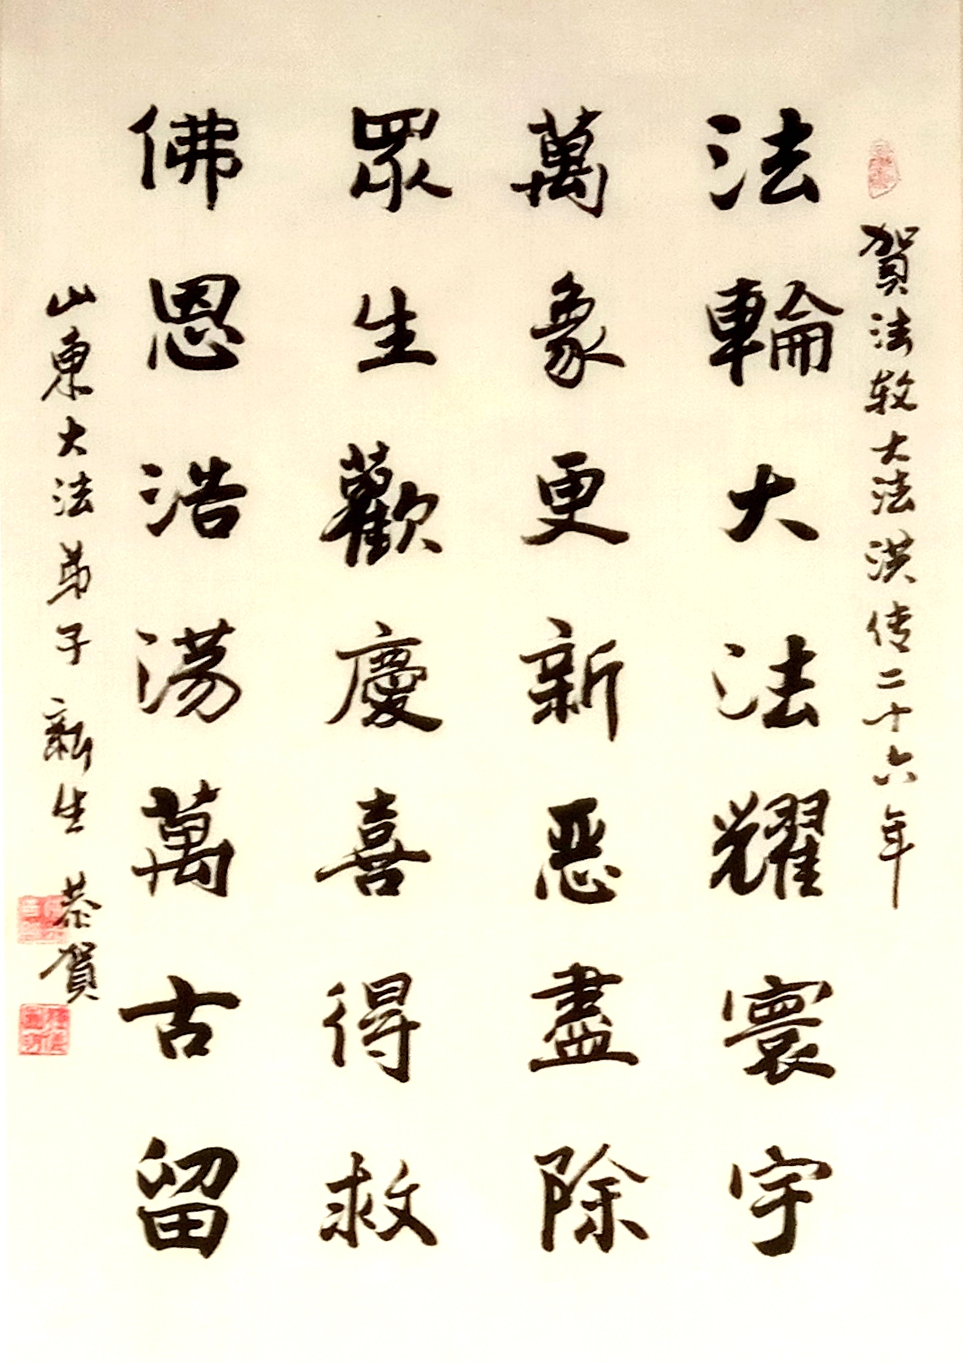 贺法轮大法洪传二十六年
法輪大法耀寰宇
萬象更新惡盡除
眾生歡慶喜得救
佛恩浩荡萬古留
山東大法弟子新生恭賀